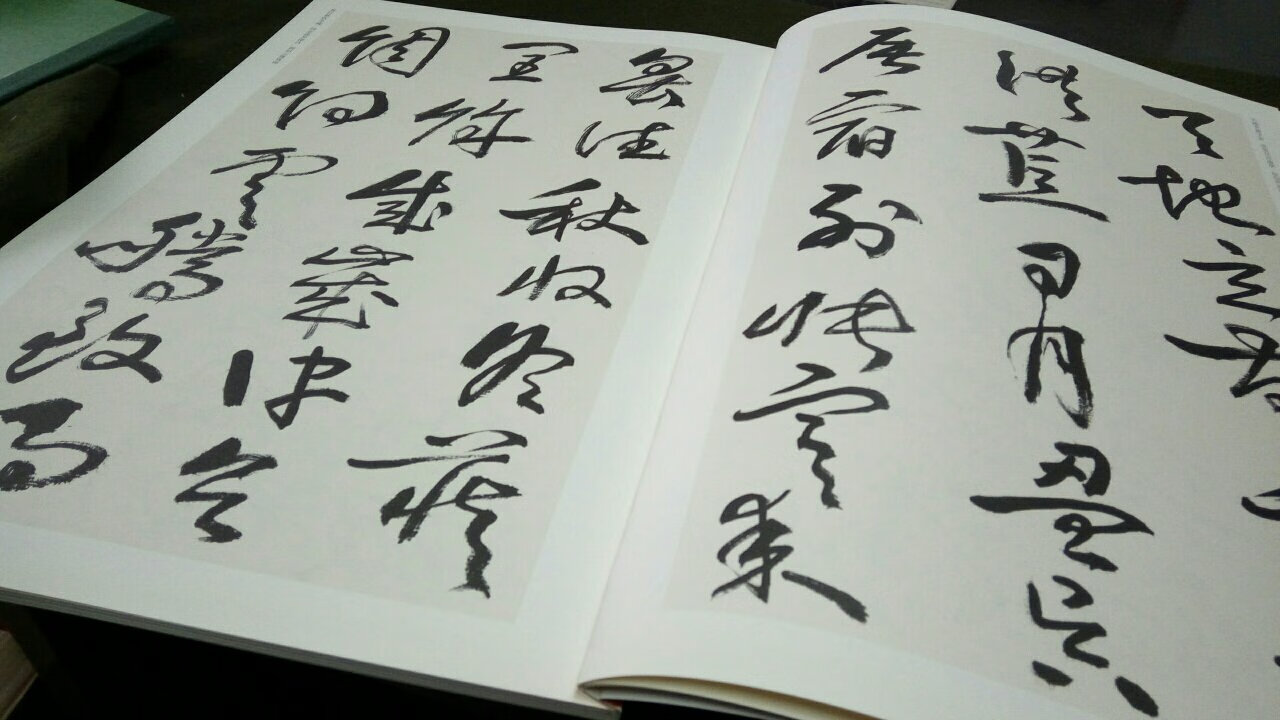 天地玄黃
洪荒日月盈昃
辰宿列張寒來
暑往秋收冬藏
閏餘成歲律召
調陽雲騰致雨